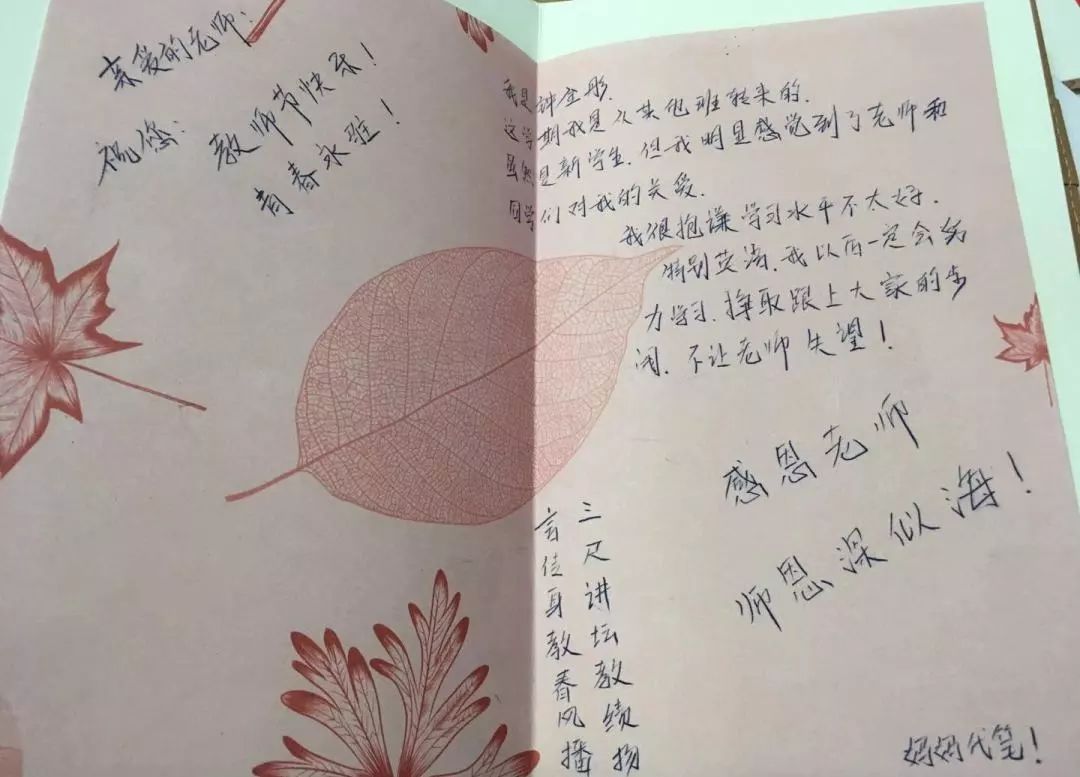 亲爱的老师:
祝您:
教师节快乐!
青春永驻!
我是许金彤.
这学期我是从其他班转来的.
虽然是新学生.但我明显感觉到了老师和
同学们对我的关爱.
我很抱谦学习水平不太好.
特别英语.我以后一定会努
力学习.择取跟上大家的步
闶.不让老师失望!
感恩老师
师恩深似海!
三尺讲坛教绩扬
言传身教春风播
妈妈代笔!